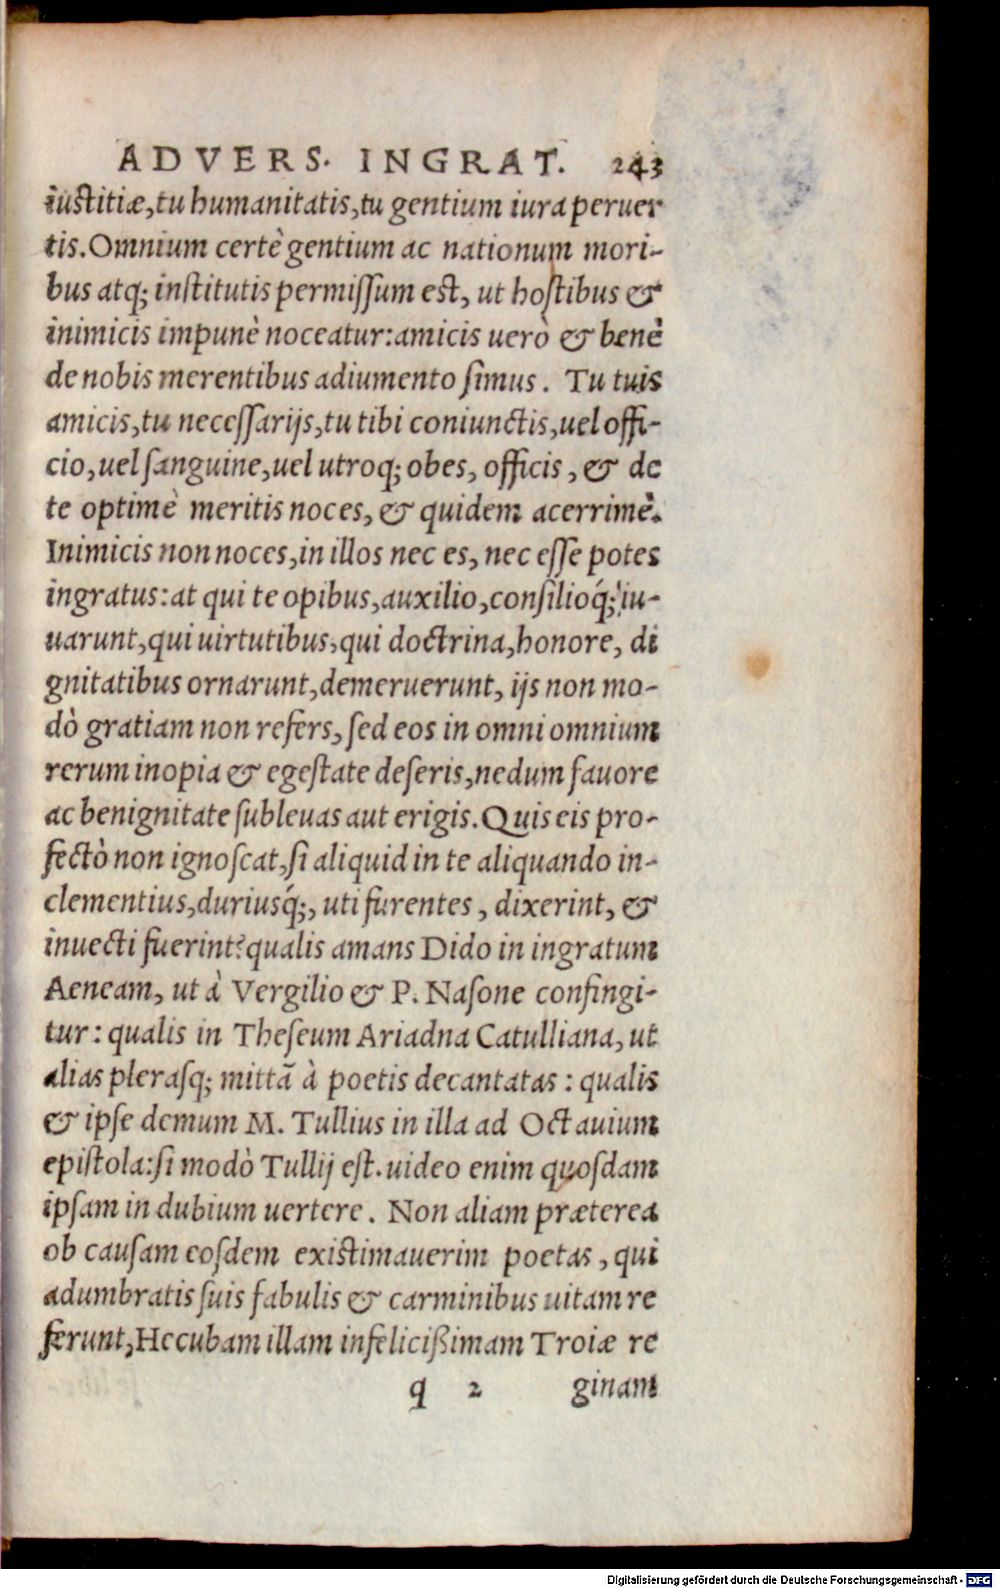 ADVERS. INGRAT. 243
iustitiæ, tu humanitatis, tu gentium iura peruer
tis. Omnium certè gentium ac nationum mori-
bus atq; institutis permissum est, ut hostibus &
inimicis impunè noceatur: amicis uerò & benè
de nobis merentibus adiumento simus. Tu tuis
amicis, tu necessarijs, tu tibi coniunctis, uel offi-
cio, uel sanguine, uel utroq; obes, officis, & de
te optimè meritis noces, & quidem acerrimè.
Inimicis non noces, in illos nec es, nec esse potes
ingratus: at qui te opibus, auxilio, consilioq́; iu-
uarunt, qui uirtutibus, qui doctrina, honore, di
gnitatibus ornarunt, demeruerunt, ijs non mo-
dò gratiam non refers, sed eos in omni omnium
rerum inopia & egestate deseris, nedum fauore
ac benignitate subleuas aut erigis. Quis eis pro-
fectò non ignoscat, si aliquid in te aliquando in-
clementius, duriusq́;, uti furentes, dixerint, &
inuecti fuerint? qualis amans Dido in ingratum
Aeneam, ut à Vergilio & P. Nasone confingi-
tur: qualis in Theseum Ariadna Catulliana, ut
alias plerasq; mittā à poetis decantatas: qualis
& ipse demum M. Tullius in illa ad Octauium
epistola: si modò Tullij est. uideo enim quosdam
ipsam in dubium uertere. Non aliam præterea
ob causam eosdem existimauerim poetas, qui
adumbratis suis fabulis & carminibus uitam re
ferunt, Hecubam illam infelicißimam Troiæ re
q 2 ginam
Digitalisierung gefördert durch die Deutsche Forschungsgemeinschaft - DFG